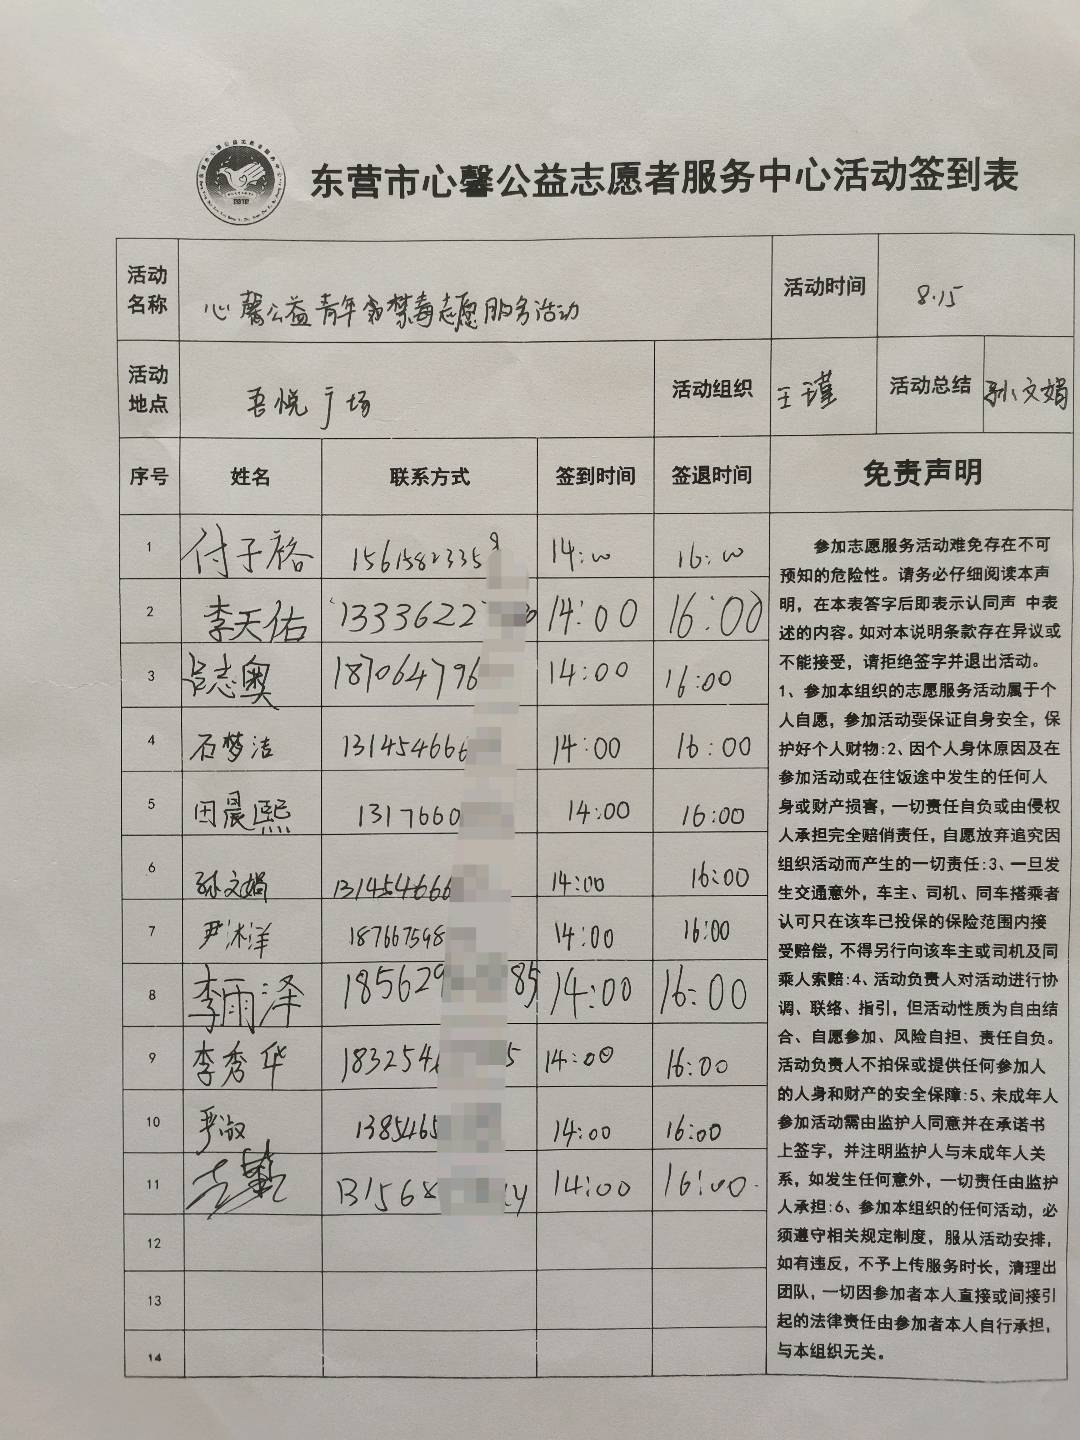 东营市心馨公益志愿者服务中心活动签到表
活动名称 心馨公益青年禁毒志愿服务活动 活动时间 8.15
活动地点 吾悦广场 活动组织 王瑾 活动总结 孙文娟
序号 姓名 联系方式 签到时间 签退时间 免责声明
1 付子裕 1561582335 14:00 16:00
2 李天佑 1333622 14:00 16:00
3 吕志奥 187064796 14:00 16:00
4 石梦洁 131454666 14:00 16:00
5 田晨熙 1317660 14:00 16:00
6 孙文娟 131454666 14:00 16:00
7 尹沐洋 187667598 14:00 16:00
8 李雨泽 185629 85 14:00 16:00
9 李秀华 1832546 5 14:00 16:00
10 严淑 1385465 14:00 16:00
11 131568 14:00 16:00
12
13
14
参加志愿服务活动难免存在不可
预知的危险性。请务必仔细阅读本声
明，在本表答字后即表示认同声 中表
述的内容。如对本说明条款存在异议或
不能接受，请拒绝签字并退出活动。
1、参加本组织的志愿服务活动属于个
人自愿，参加活动耍保证自身安全，保
护好个人财物:2、因个人身休原因及在
参加活动或在往饭途中发生的任何人
身或财产损害，一切责任自负或由侵权
人承担完全赔俏责任，自愿放弃追究因
组织活动而产生的一切责任:3、一旦发
生交通意外，车主、司机、同车搭乘者
认可只在该车已投保的保险范围内接
受赔偿，不得另行向该车主或司机及同
乘人索赔:4、活动负责人对活动进行协
调、联络、指引，但活动性质为自由结
合、自愿参加、风险自担、责任自负。
活动负责人不拍保或提供任何参加人
的人身和财产的安全保障:5、未成年人
参加活动需由监护人同意并在承诺书
上签字，并注明监护人与未成年人关
系，如发生任何意外，一切责任由监护
人承担:6、参加本组织的任何活动，必
须遵守相关规定制度，服从活动安排，
如有违反，不予上传服务时长，清理出
团队，一切因参加者本人直接或间接引
起的法律责任由参加者本人自行承担，
与本组织无关。